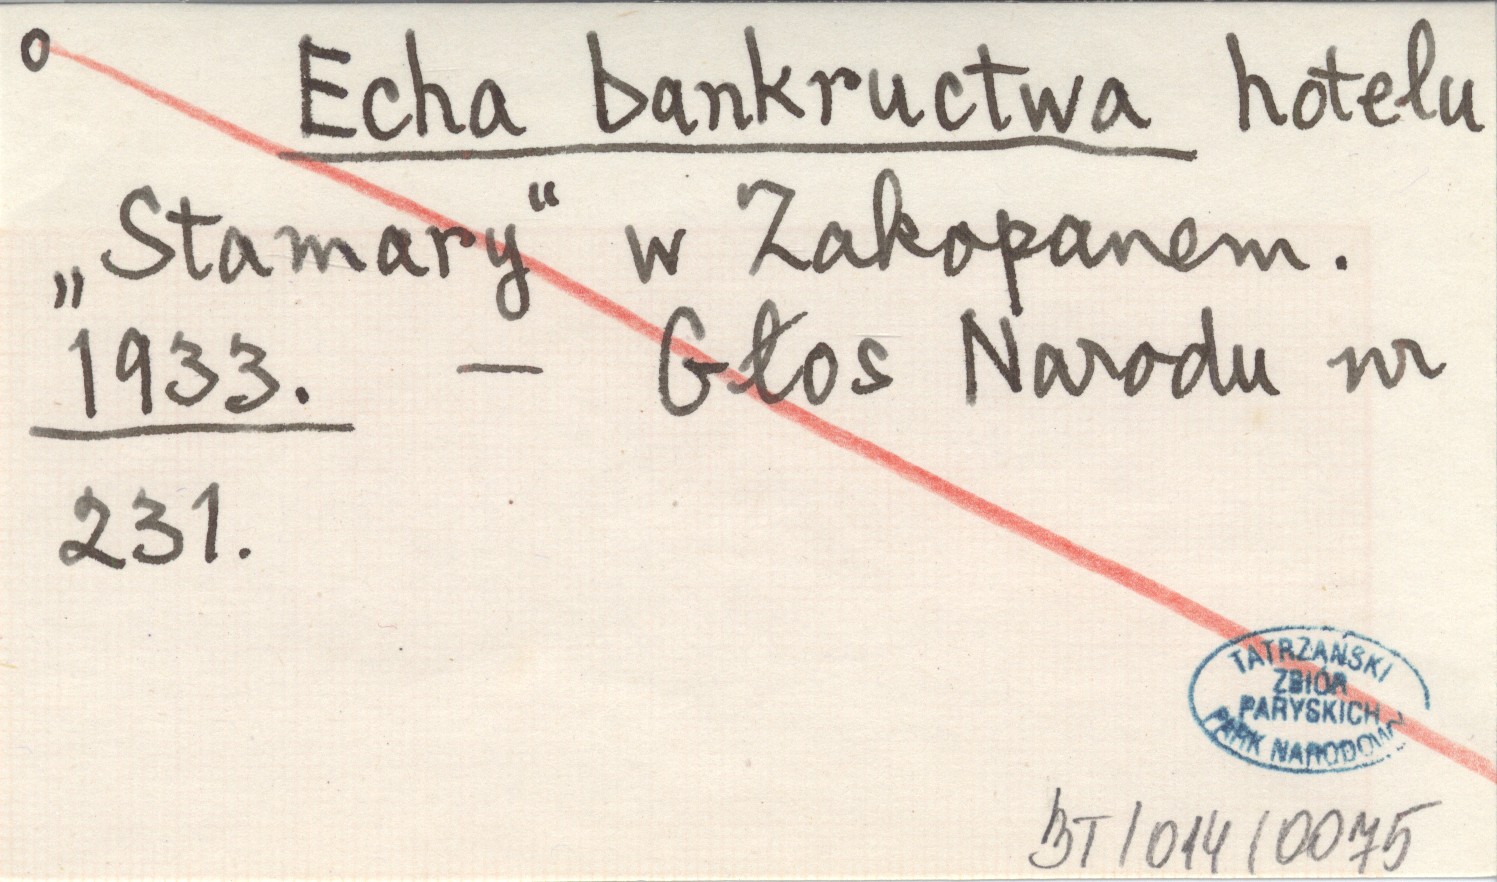 o Echa bankructwa hotelu
„Stamary“ w Zakopanem.
1933. — Głos Narodu nr
231.
TATRZAŃSKI
ZBIÓR
PARYSKICH
PARK NARODOWY
BT/014/0075